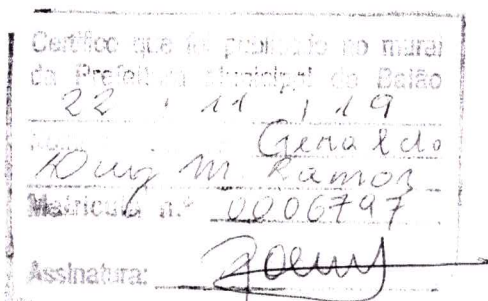 Certifico que foi publicado no mural
da Prefeitura Municipal de Baião
22 / 11 / 19
Geraldo
M. Ramos
Matricula n.º 0006797
Assinatura: